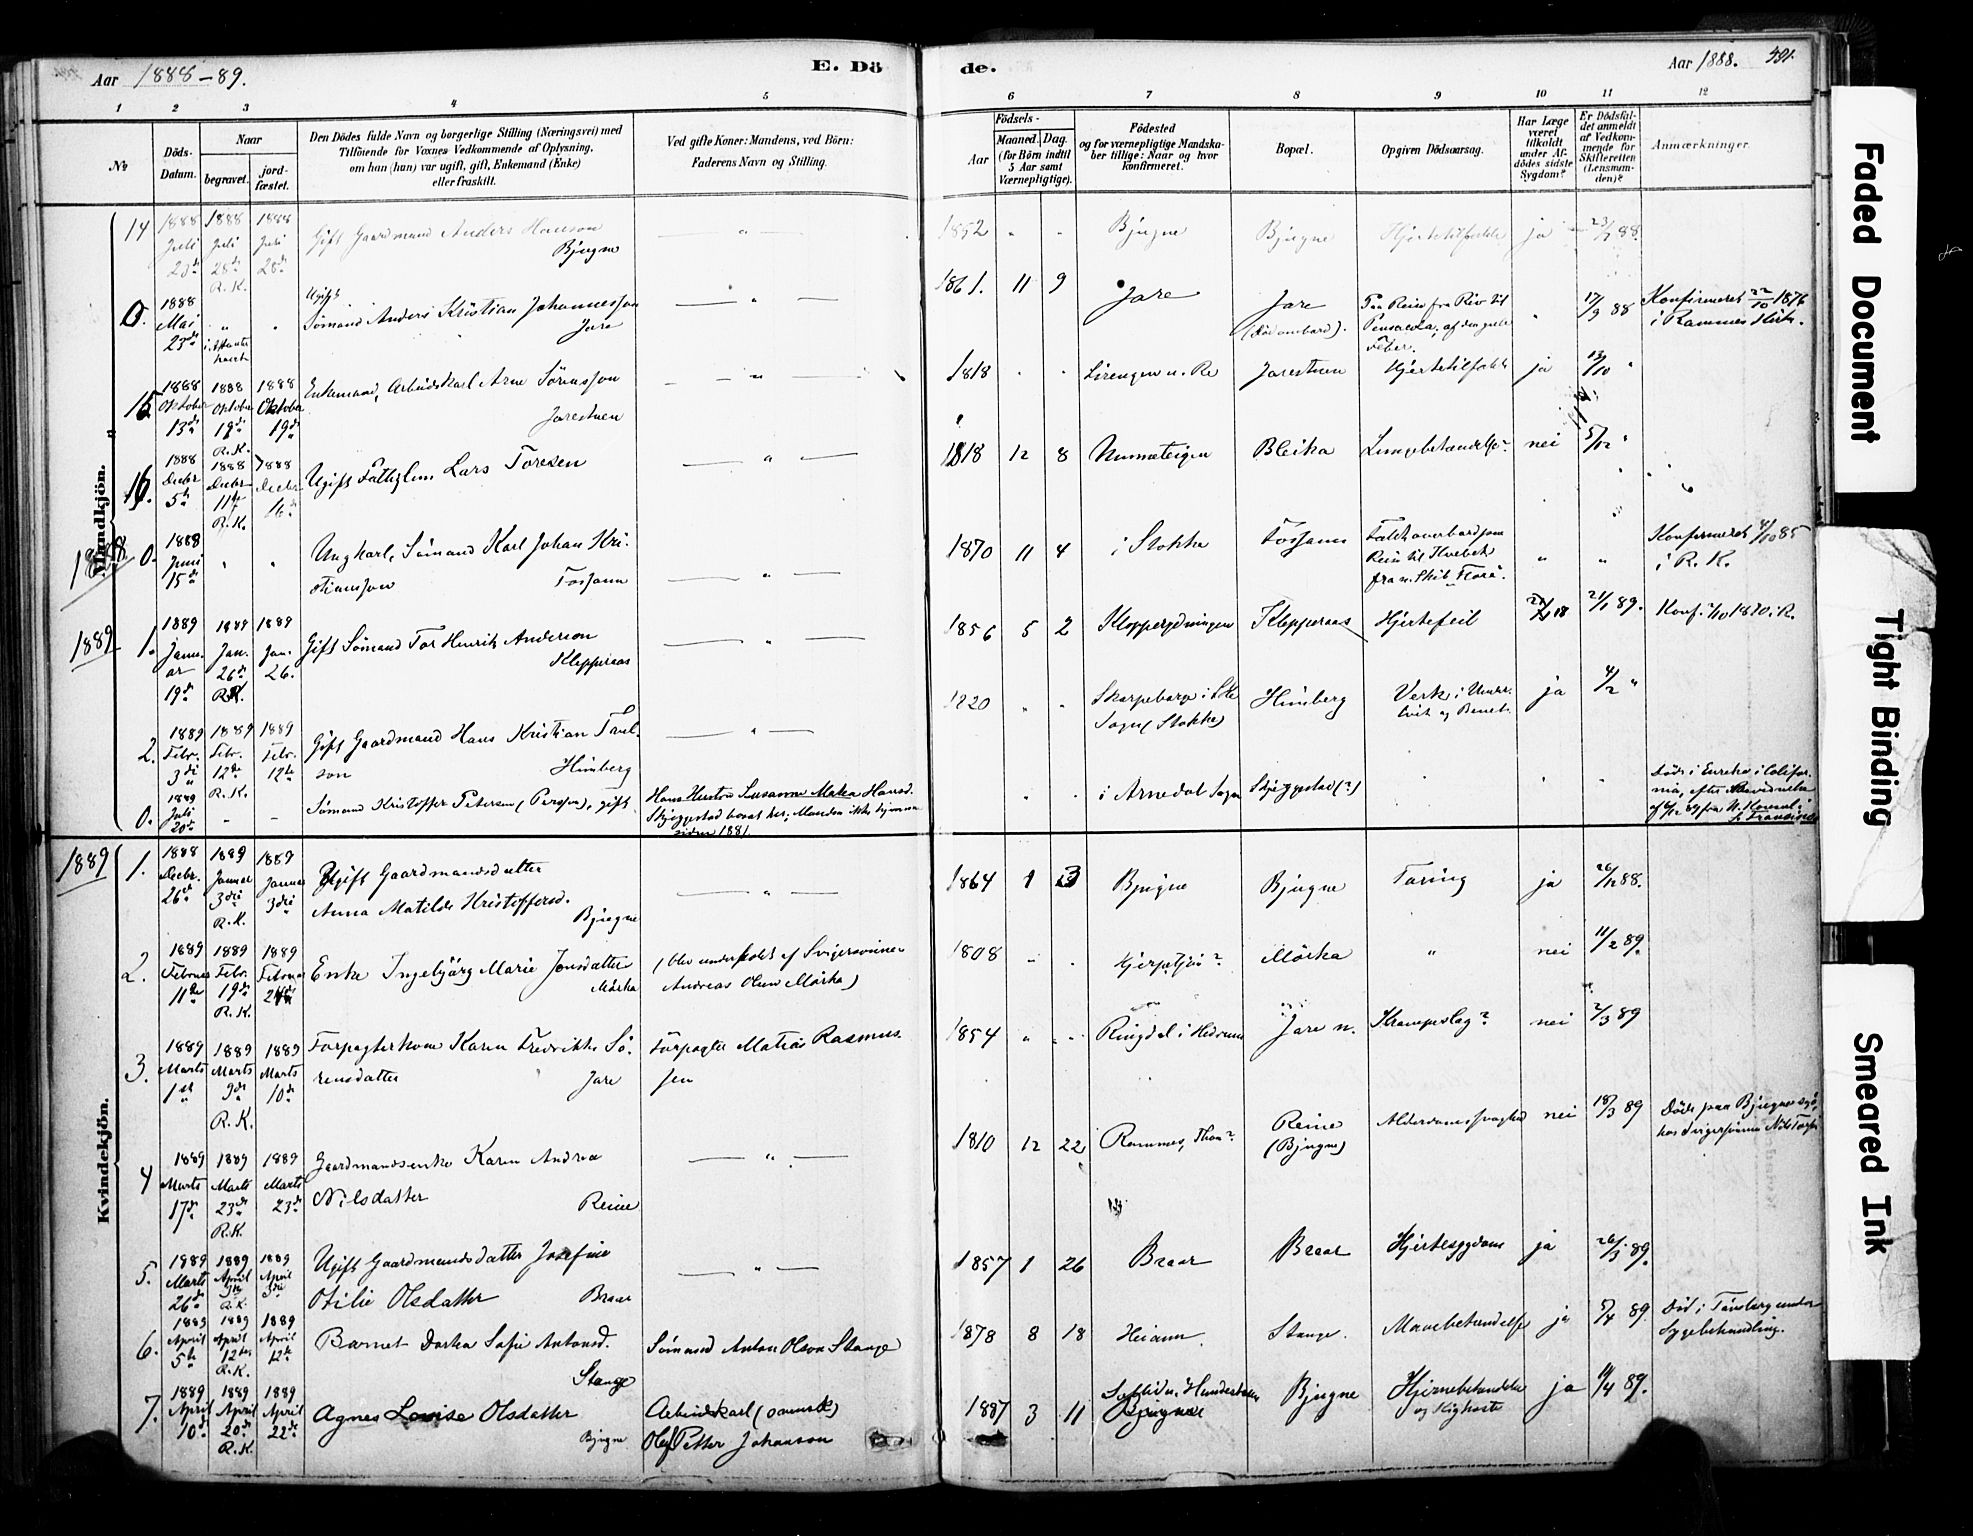 Aar 1888-89.
E. Dö
de.
Aar 1888.
1 2 3 4 5 6 7 8 9 10 11 12
No
Döds-Datum.
Naar
begravet.
jord-fæstet.
Den Dödes fulde Navn og borgerlige Stilling (Næringsvei) med
Tilföiende for Voxnes Vedkommende af Oplysning,
om han (hun) var ugift, gift, Enkemand (Enke)
eller fraskilt.
Ved gifte Koner: Mandens, ved Börn:
Faderens Navn og Stilling.
Aar
Födsels-
Maaned. Dag.
(for Börn indtil
5 Aar samt
Værnepligtige).
Födested
og for værnepligtige Mandska-
ber tillige: Naar og hvor
konfirmeret.
Bopæl.
Opgiven Dödsaarsag.
Har Læge
været
tilkaldt
under Af-
dödes sidste
Sygdom?
Er Dödsfal-
det anmeldt
af Vedkom-
mende for
Skifteretten
(Lensman-
den)?
Anmærkninger.
Mandkjön.
14 1888 Juli 1888 Juli 28de R.K. 1888 Juli 28de Gift Gaardmand Anders Hanson Bjugne 1852 Bjugne Bjugne Hjertetilfælde ja 23/7 88.
0. 1888 Mai 23de Ugift Sömand Anders Kristian Johannesson Jare 1861. 11 9 Jare Jare (död ombord). Paa Reise fra Rio til Pensacola, af den gule Feber. 17/9 88 Konfirmeret 22/10 1876 i Ramnes Kirke.
15 1888 Oktober 13de 1888 Oktober 19de R.K. 1888 Oktober 19de Enkemand, Arbeidskarl Arne Sörensson Jarestuen 1818 Lirengen n. Re Jarestuen Hjertetilfælde ja 13/10 "
16. 1888 Decbr 5te 1888 Decbr 11te R.K. 1888 Decbr 16de Ugift Fattiglem Lars Toresen 1818 12 8 Unmateigen Bleika Lungebetændelse? nei 5/12 "
1888
0. 1888 Juni 15de Ungkarl, Sömand Karl Johan Kri-
stiansson Fossann 1870 11 4 i Stokke Fossann Faldt overbord paa Reise til Kvebek fra n. Skib "Flora". " " Konfirmeret 4/10 85 i R.K.
1889
1. 1889 Janu-
ar 19de 1889 Jan. 26de R.K. 1889 Jan. 26. Gift Sömand Tor Henrik Anderson Klepperaas 1856 5 2 Klopperydningen Klepperaas Hjertefeil 21/1 89. Konf. 1/10 1870 i R.
2. 1889 Febr. 3die 1889 Febr. 12te R.K. 1889 Febr. 12te Gift Gaardmand Hans Kristian Paul-
son Himberg 1820 Skarpeborge i Stokke Sogn (Stokke) Himberg Værk i Underlivet og Benet. ja 4/2 "
0. 1889 Juli 20de - - Sömand Kristoffer Petersen (Persson), gift Hans Hustru Susanne Matea Hansd. Skjeggestad boret her; Manden ikke hjemme siden 1881. i Arnedal Sogn Skjeggestad (?) Döde i Eureka i Califor-
nia, efter
Kvindekjön.
1889
1. 1888 Decbr. 26de 1889 Januar 3die R.K. 1889 Januar 3die Ugift Gaardmandsdatter
Anna Matilde Kristoffersd. Bjugne 1864 1 3 Bjugne Bjugne Tæring ja 26/12 88.
2. 1889 Februar 11te 1889 Febr. 19de R.K. 1889 Februar 24de Enke Ingebjörg Marie Jonsdatter Mörka (blev underholdt af Svigersönnen
Andreas Olsen Mörka) 1808 Hjerpetjön? Mörka " nei 11/2 89.
3. 1889 Marts 1ste 1889 Marts 9de R.K. 1889 Marts 10de Forpagterkone Karen Fredrikke Sö-
rensdatter Jare Forpagter Matias Rasmus-
sen 1854 Ringdal i Hedrum Jare n. Krampeslag? nei 2/3 89
4 1889 Marts 17de 1889 Marts 23de R.K. 1889 Marts 23de Gaardmandsenke Karen Andrea
Nilsdatter Reine 1810 12 22 Ramnes, Thon? Reine (Bjugne) Alderdomssvaghed nei 18/3 89 Döde paa Bjugne
hos Svigersönnen Nils
5. 1889 Marts 26de 1889 April 3die R.K. 1889 April 3die Ugift Gaardmandsdatter Josefine
Otilie Olsdatter Braar 1857 1 26 Braar Braar Hjertesygdom ja 26/3 89.
6. 1889 April 5te 1889 April 12te R.K. 1889 April 12te Barnet Dorthea Sofie Antonsd. Stange Sömand Anton Olson Stange 1878 8 18 Heiann Stange. Mavebetændelse ja 5/4 89. Död i Tönsberg under
Sygebehandling.
7. 1889 April 10de 1889 April 20de R.K. 1889 April 22de Agnes Lovise Olsdatter Bjugne Arbeidskarl (svensk)
Olef Petter Johanson 1887 3 11 Bjugne Bjugne Hjernebetændelse
og Kighoste ja 10/4 89.
Faded Document
Tight Binding
Smeared Ink